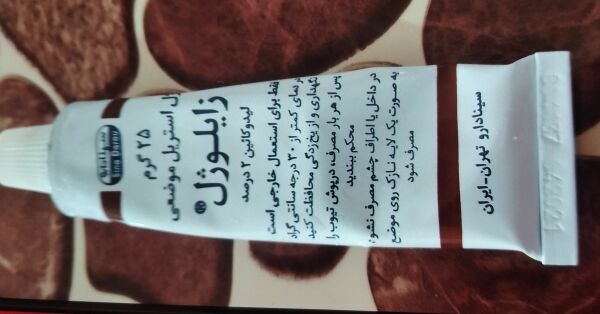 سینادارو
Sina Darou
۲۵ گرم
ژل استریل موضعی
زایلوژل®
لیدوکائین ۲ درصد
فقط برای استعمال خارجی است
در دمای کمتر از ۳۰ درجه سانتی گراد
نگهداری و از یخ زدگی محافظت کنید
پس از هر بار مصرف، درپوش تیوب را
محکم ببندید
در داخل یا اطراف چشم مصرف نشود
به صورت یک لایه نازک روی موضع
مصرف شود
سینادارو تهران-ایران